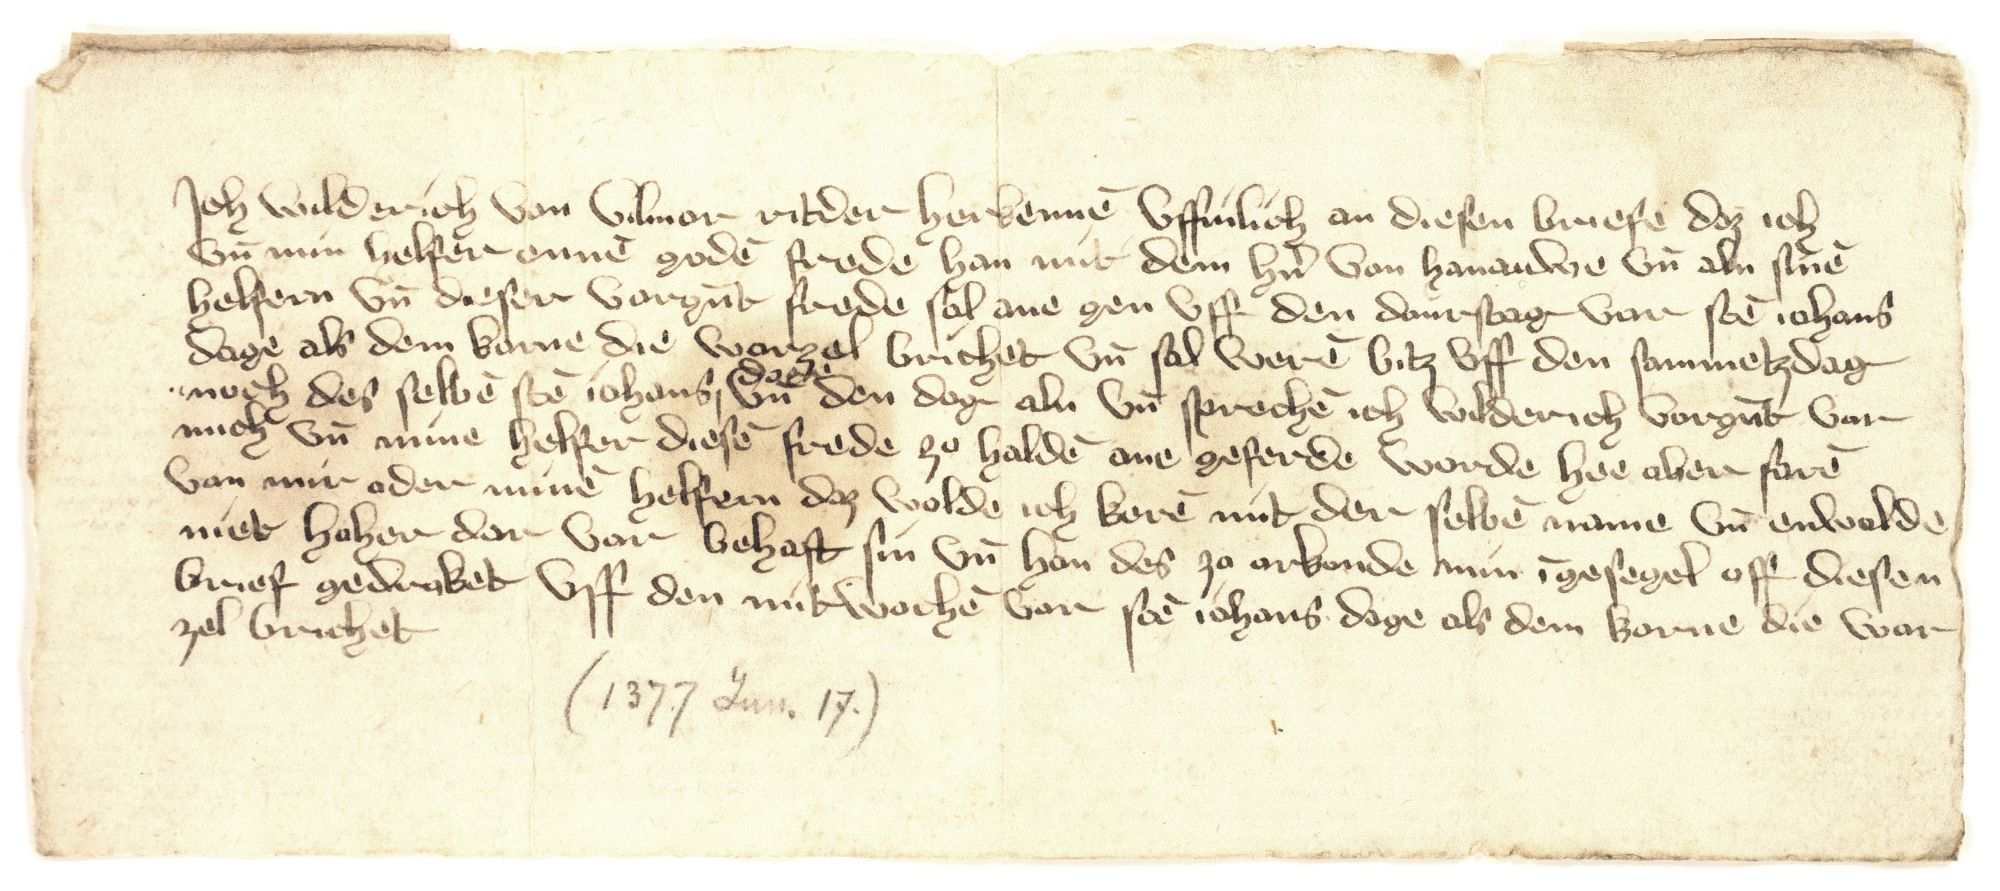 Ich wilderich von vilmar ritder herkennē vffinlich an diesen briefe daz ich
vn̄ min helfer eynnē godē frede han mit dem hn̄ von hanauwe vn̄ aln sinē
helfern vn̄ dieser vorgn̄t frede sal ane gen vff den donrstag vor sce iohans
dage als dem korne die worzel brichet vn̄ sal werē bitz vff den sammetzdag
noch des selbē scē iohans dage vn̄ den dag aln vn̄ sprechē ich wilderich vorgn̄t vor
mich vn̄ mine helfer diesē frede zo haldē ane geferde worde hee aber farē
von mir oder minē helfern daz wolde ich kerē mit der selbē name vn̄ enwolde
niet hoher dar vor behaft sin vn̄ han des zo orkonde min īgesegel off diesen
brief gedrucket vff den mitwochē vor scē iohans dage als dem korne die wor
zel brichet
(1377 Jun. 17.)